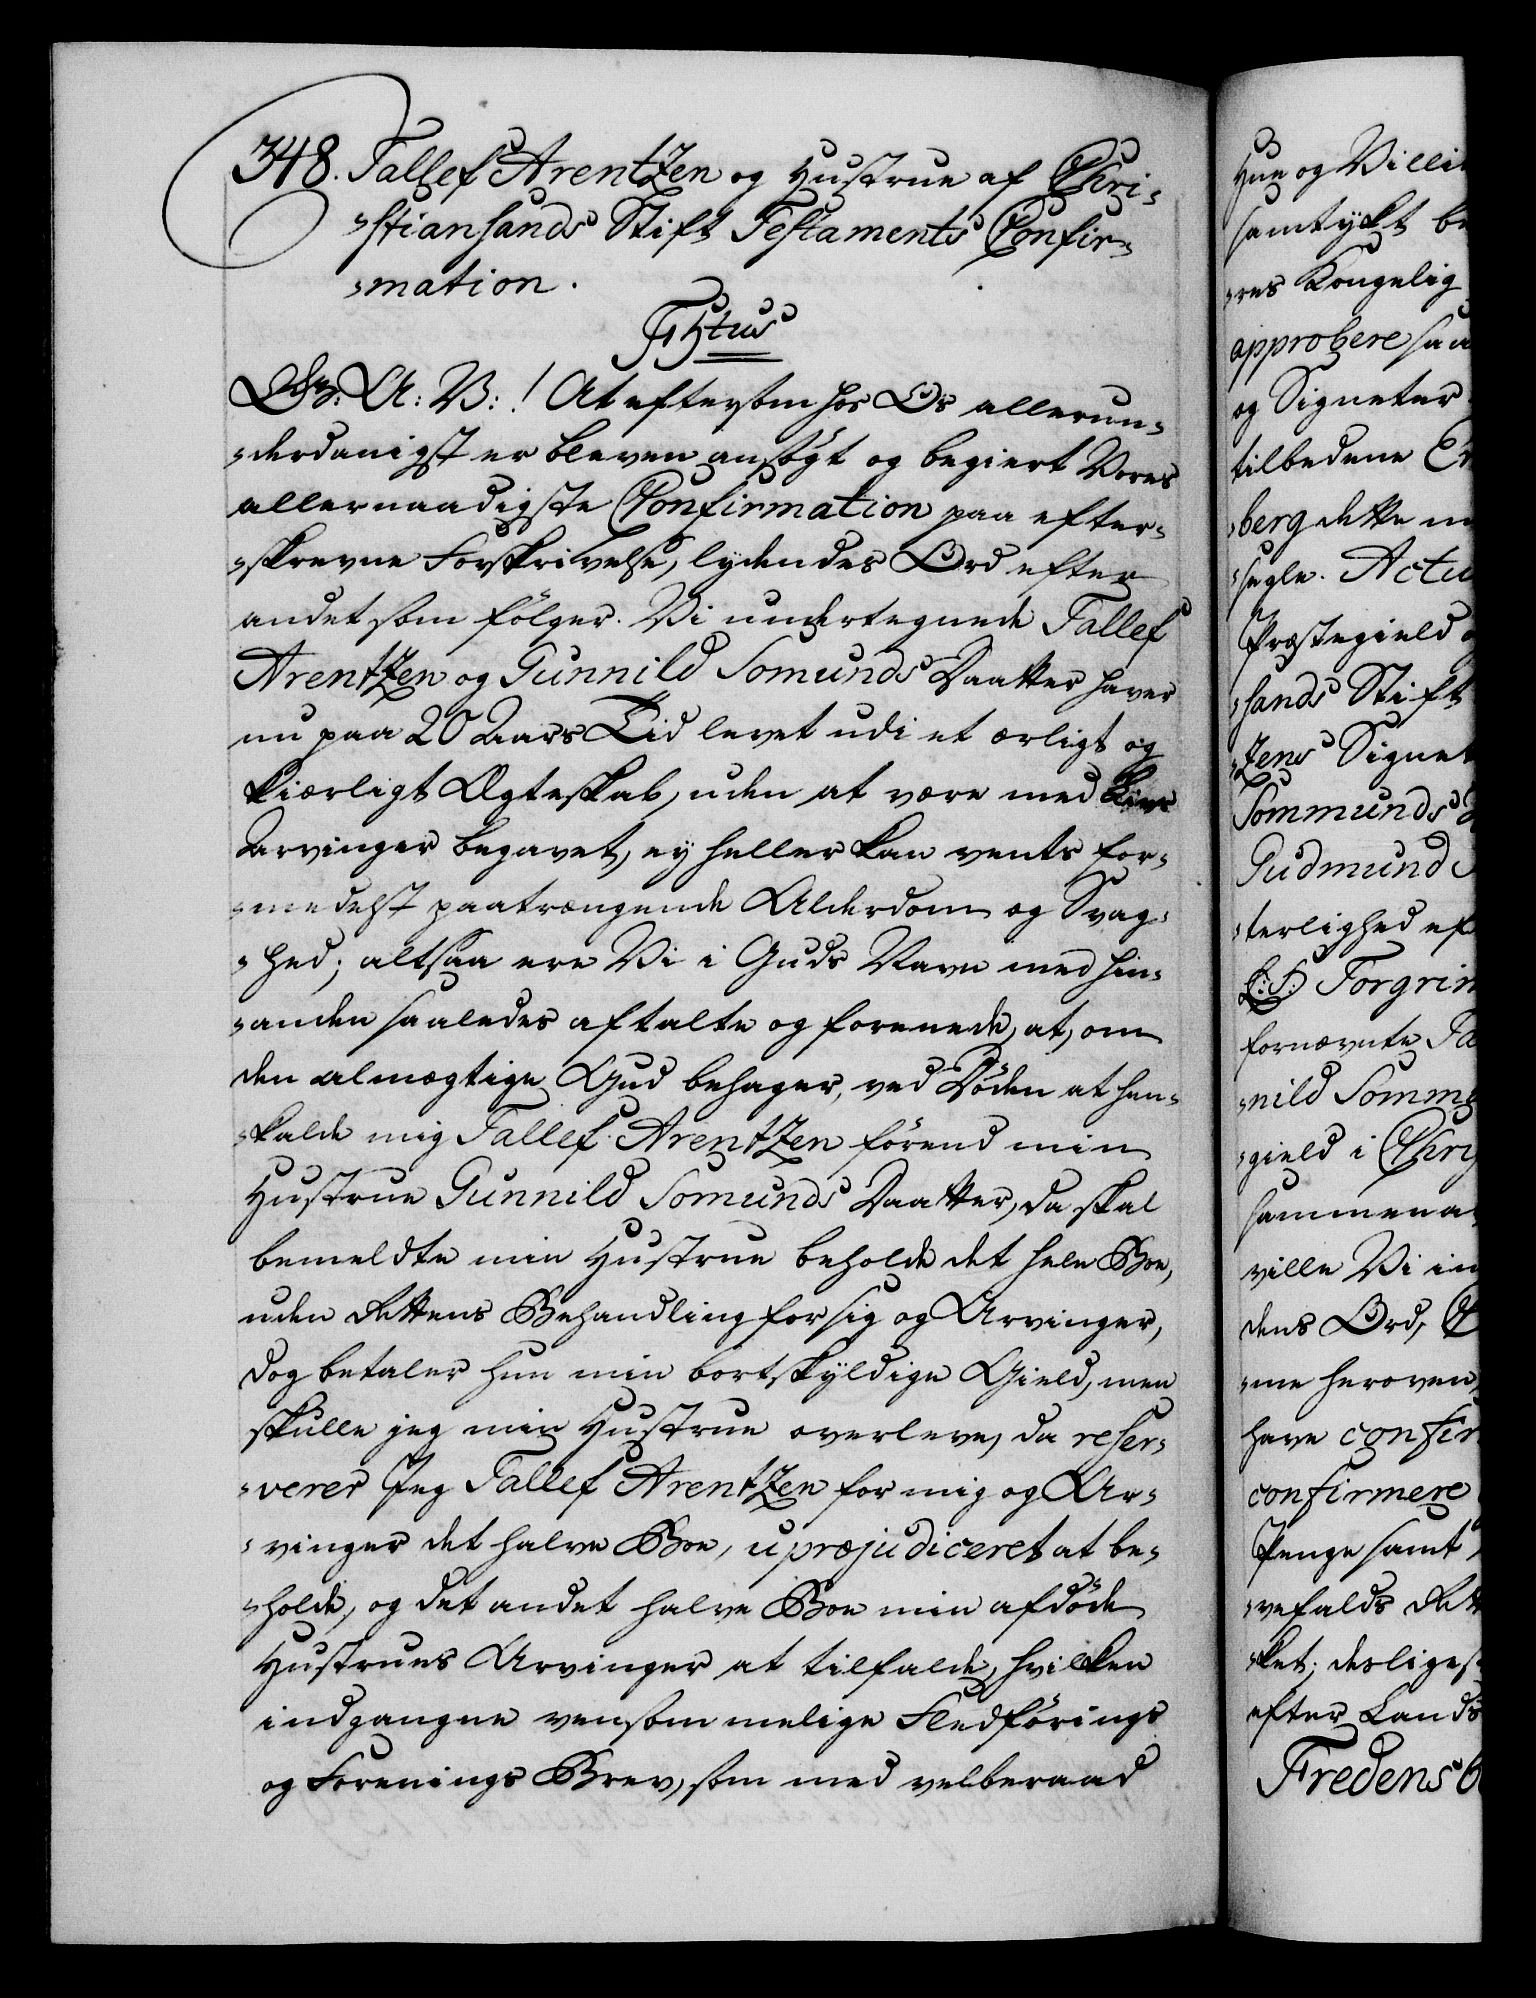 348. Tallef Arentzen og Hustrue af Chri-
-stiansands Stift Testaments Confir-
-mation.
Gr: A: V:! At eftersom hos Os allerun-
-derdanigst er bleven ansøgt og begiert Vores
allernaadigste Confirmation paa efter-
-skrevne Forskrivelse, lydendes Ord efter
andet som følger. Vi undertegnede Tallef
Arentzen og Gunnild Somunds Daatter haver
nu paa 20 Aars Tid levet udi et ærligt og
kiærligt Ægteskab, uden at være med Livs
Arvinger begavet, ey heller kan vents for-
-medelst paatrængende Alderdom og Svag-
-hed; altsaa ere Vi i Guds Navn med hin-
-anden saaledes aftalte og forenede, at, om
den almægtige Gud behager, ved Døden at hen-
-kalde mig Tallef Arentzen førend min
Hustrue Gunnild Somunds Daatter, da skal
bemeldte min Hustrue beholde det hele Boe,
uden Rettens Behandling for sig og Arvinger,
dog betaler hun min bortskyldige Gield, men
skulle jeg min Hustrue overleve, da reser-
-verer Jeg Tallef Arentzen for mig og Ar-
-vinger det halve Boe, upræjudiceret at be-
-holde, og det andet halve Boe min afdøde
Hustrues Arvinger at tilfalde, hvilken
indgangne vensommelige Fledførings
og Forenings Brev, som med velberaad
Hue og Villi
samtykt be
-res Kongelig
approbere saa
og Signeter
tilbedene
-berg dette m
-segle. Actu
Præstegield
-sands Stift
-zens Signet
Sommunds
Gudmund
-terlighed ef
(L:S:) Torgrim
fornævnte Ta
-nild Somm
-gield i Chri
sammena
ville Vi in
dens Ord,
-me heroven
have confir
confirmere
Penge samt
-vefalds Rett
-ket; desliges
efter Lands
Fredensb